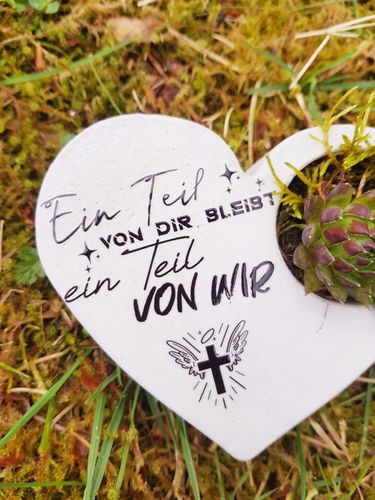 Ein Teil
VON DIR BLEIBT
ein Teil
VON WIR